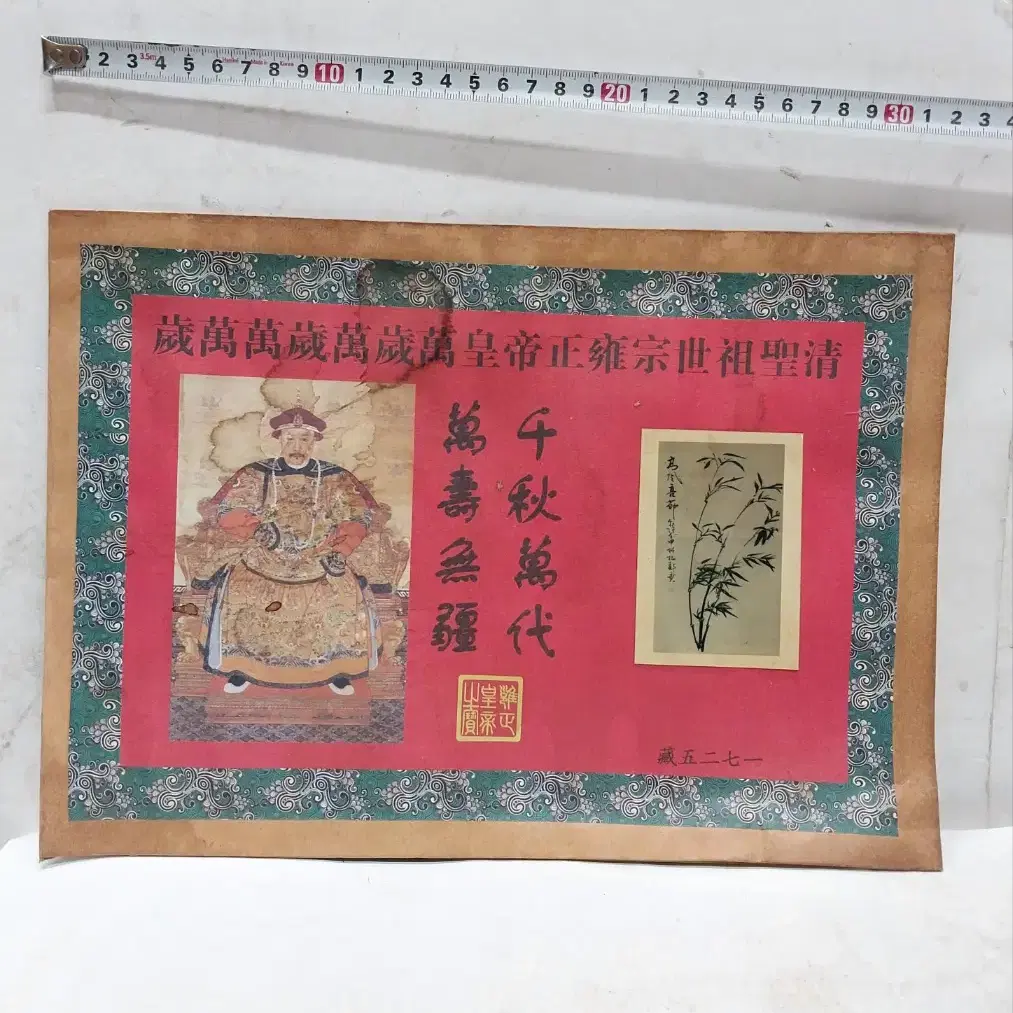 2 3 3.5m 4 5 6 7 8 9 10 1 2 3 4 5 6 7 8 9 20 1 2 3 4 5 6 7 8 9 30 1 2 3 4
清聖祖世宗雍正帝皇萬歲萬歲萬萬歲
千秋萬代
萬壽無疆
雍正
皇帝
之寶
高風亮節
一七二五藏